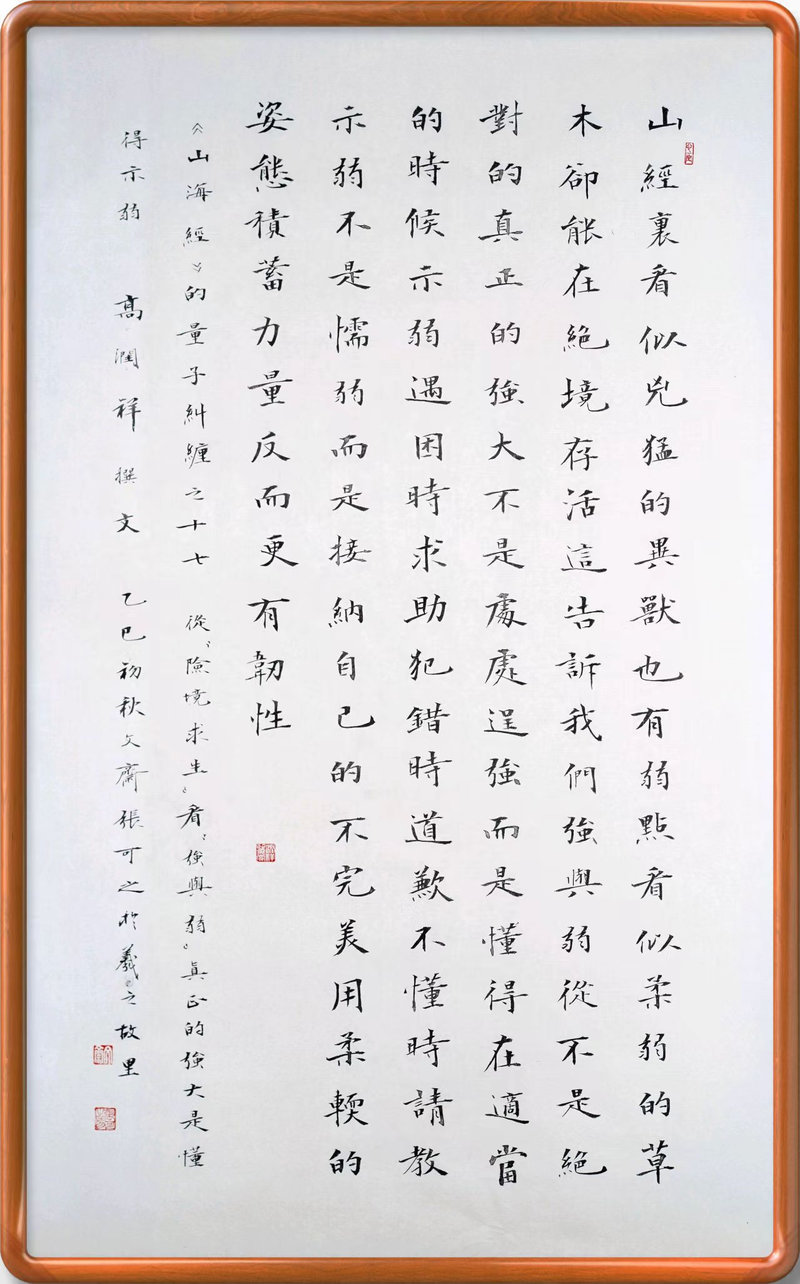 山經裏看似兇猛的異獸也有弱點看似柔弱的草
木卻能在絕境存活這告訴我們強與弱從不是絕
對的真正的強大不是處處逞強而是懂得在適當
的時候示弱遇困時求助犯錯時道歉不懂時請教
示弱不是懦弱而是接納自己的不完美用柔輭的
姿態積蓄力量反而更有韌性
《山海經》的量子糾纏之十七 從“險境求生”看“強與弱”真正的強大是懂
得示弱 高潤祥 撰文 乙巳初秋文齋張可之於羲之故里